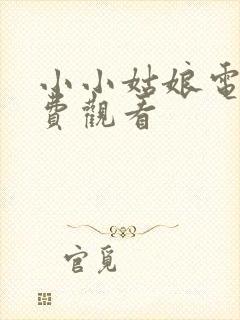 小小姑娘電
費觀看
官覓